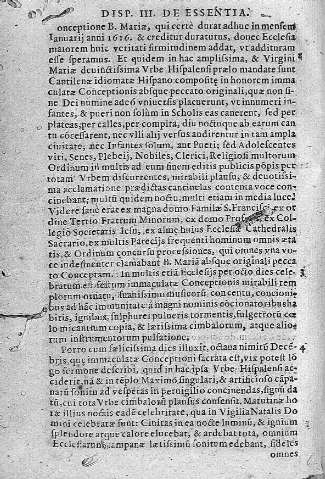 DISP. III. DE ESSENTIA.
onceptione B. Mariæ, qui certè durat adhuc in mensem
Ianuarij anni 1616. & creditur duraturus, donec Ecclesia
maiorem huic veritati firmitudinem addat, vt addituram
esse speramus. Et quidem in hac amplissima, & Virgini
Mariæ deuinctissima Vrbe Hispalensi prælo mandate sunt
Cantilenæ idiomate Hispano compositę in honorem immaculatæ
Conceptionis absque peccato originali, quæ non sine
Dei numine adeò vniuersis placuerunt, vt innumeri infantes,
& pueri non solùm in Scholis eas canerent, sed per
plateas, per calles, per compita, diu noctuque ab earum cantu
cessarent, nec vlli alij versus audirentur in tam ampla
ciuitate, nec Infantes solum, aut Pueri; sed Adolescentes
viri, Senes, Plebeij, Nobiles, Clerici, Religiosi multorum
Ordinum in multis ad eum finem editis publicis pompis per
totam Vrbem discurrentes, mirabili plausu, & deuotissima
acclamatione prædictas cantinelas contenta voce concinebant,
multi quidem noctu, multi etiam in media luce.
Videre sanè erat ex magna domo Familiæ S. Francisci ex ordine
Tertio Fratrum Minorum, ex domo Professa, Ex Collegio
Societatis Iesu, ex almę huius Ecclesiæ Cathedralis
Sacrario, ex multis Parecijs frequenti hominum omnis ætatis,
& Ordinum concursu processiones, qui omnes vna voce
indesinenter clamabant B. Mariā absque originali peccato
Conceptam. In multis etiā Ecclesijs per octo dies celebratum
est festum immaculatæ Conceptionis mirabili templorum
ornatu, suauissimis musicorū concentu, concionibus
ad hāc immunitatē à magni nominis doctoratoribus habitis,
ignibus, sulphurei pulueris tormentis, fulgetrorū cœlo
micantium copia, & lætissima cimbalorum, atque aliorum
instrumentorum pulsatione.
Porro cum fœlicissima dies illuxit, octaua nimirū Decēbris,
quę immaculatæ Conceptioni sacrata est, vix potest longo
sermone describi, quid in hac ipsa Vrbe Hispalensi acciderit,
nā & in tēplo Maximo singulari, & artificioso cāpanarū
sonitu ad vesperas in peruigilio concinendas, signū datū,
cui tota Vrbe cimbalorū plausus consensit. Matutinæ horæ
illius noctis eadē celebritate, qua in Vigilia Natalis Domini
celebratæ sunt: Ciuitas in ea nocte luminū, & ignium
splendore atque calore elucebat, & ardebat tota, omnium
Ecclesiarum campanæ lætissimū sonitum edebant, fideles
omnes